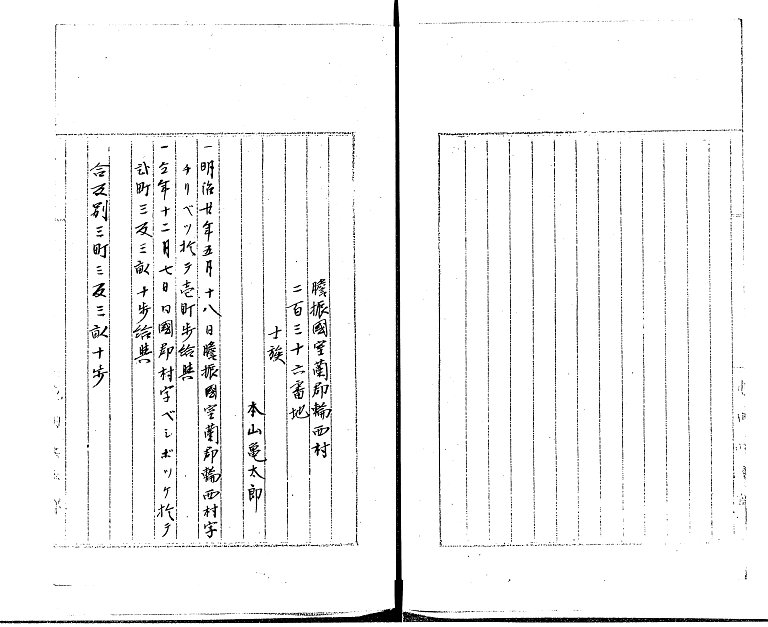 膽振國室蘭郡輪西村
二百三十六番地
士族
本山亀太郎
一明治廿年五月十八日膽振國室蘭郡輪西村字
チリベツ於テ壱町歩給與
一仝年十二月七日同國郡村字ペシボツケ於テ
弐町三反三畝十歩給與
合反別三町三反三畝十歩